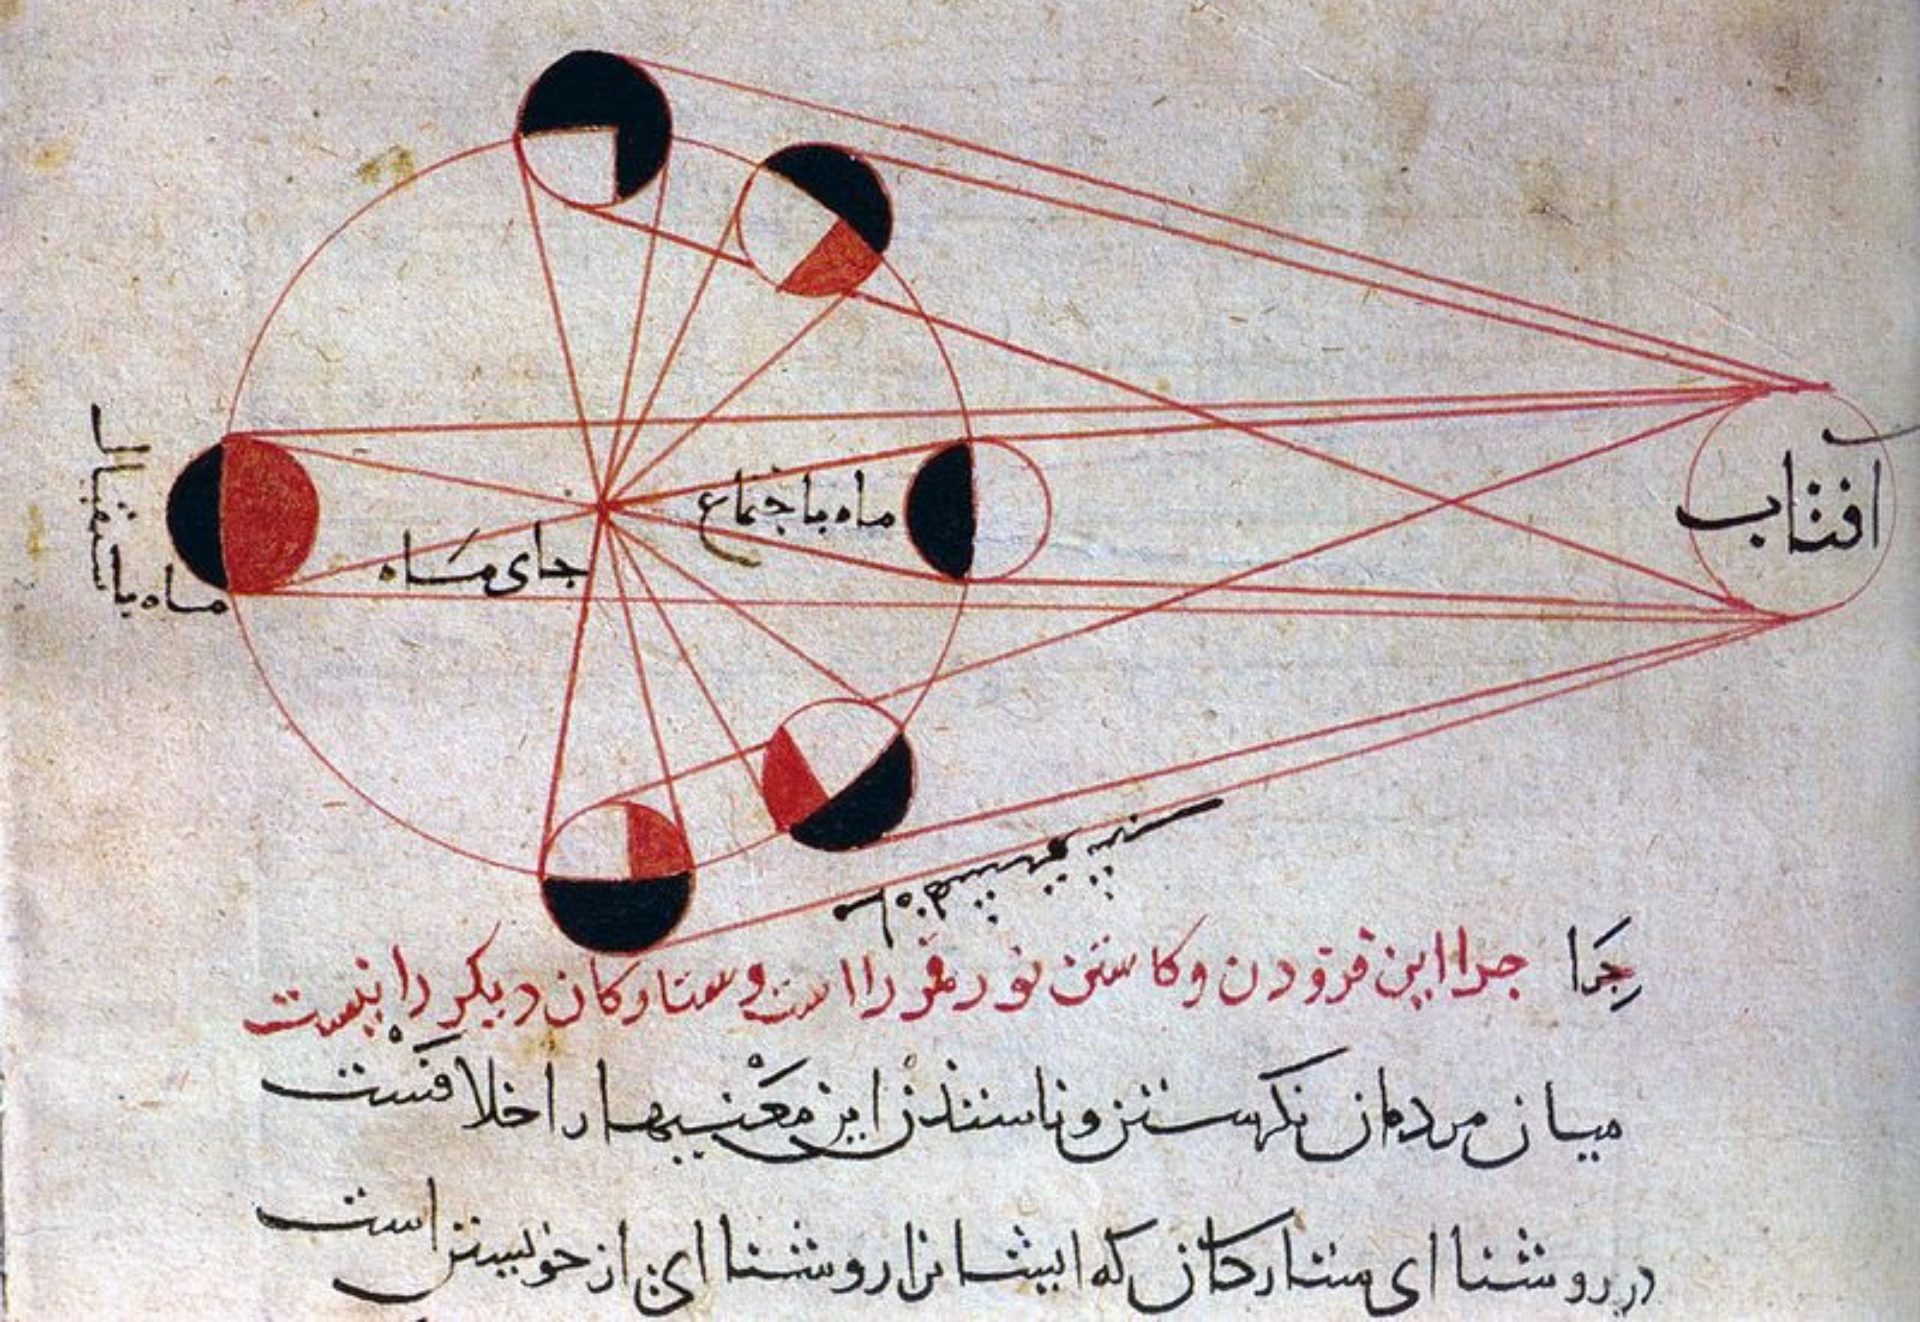 افتاب
ماه باجتماع
جای ماه
ماه باستقبال
چرا چرا این فزودن وکاستن نور قمر را است وستارکان دیکر را نیست
میان مردمان نکرستن وناستندن این معنیها را اخلافست
در روشنا ای ستارکان که ایشانرا روشنا ای از خویشتن است